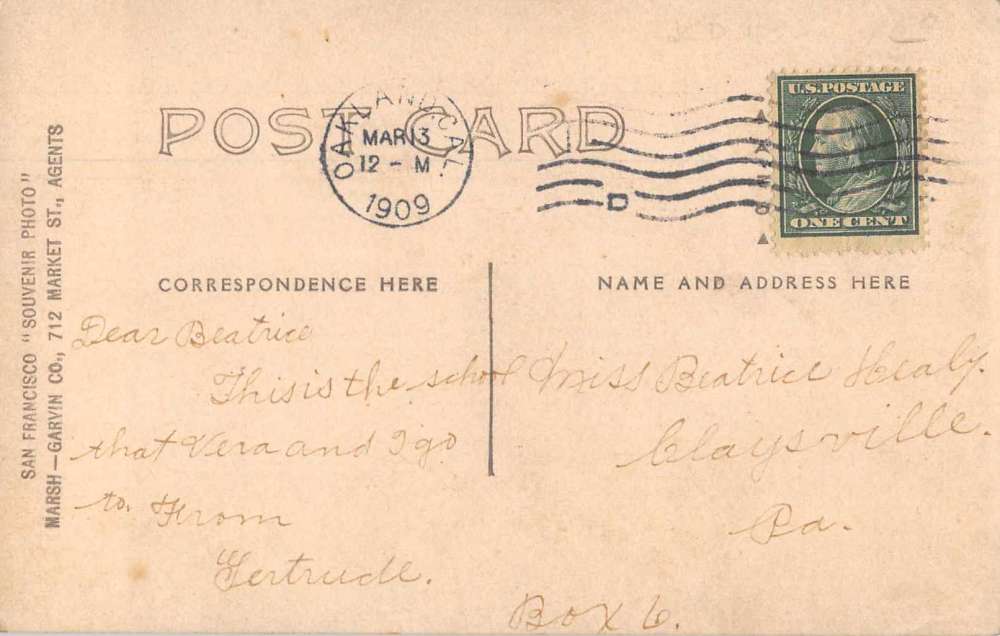 POST CARD
OAKLAND, CAL.
MAR 13
12 - M
1909
D
U.S. POSTAGE
ONE CENT
SAN FRANCISCO "SOUVENIR PHOTO"
MARSH-GARVIN CO., 712 MARKET ST., AGENTS
CORRESPONDENCE HERE
Dear Beatrice
This is the school
that Vera and I go
to. From
Gertrude.
NAME AND ADDRESS HERE
Miss Beatrice Healy.
Claysville.
Pa.
Box 6.